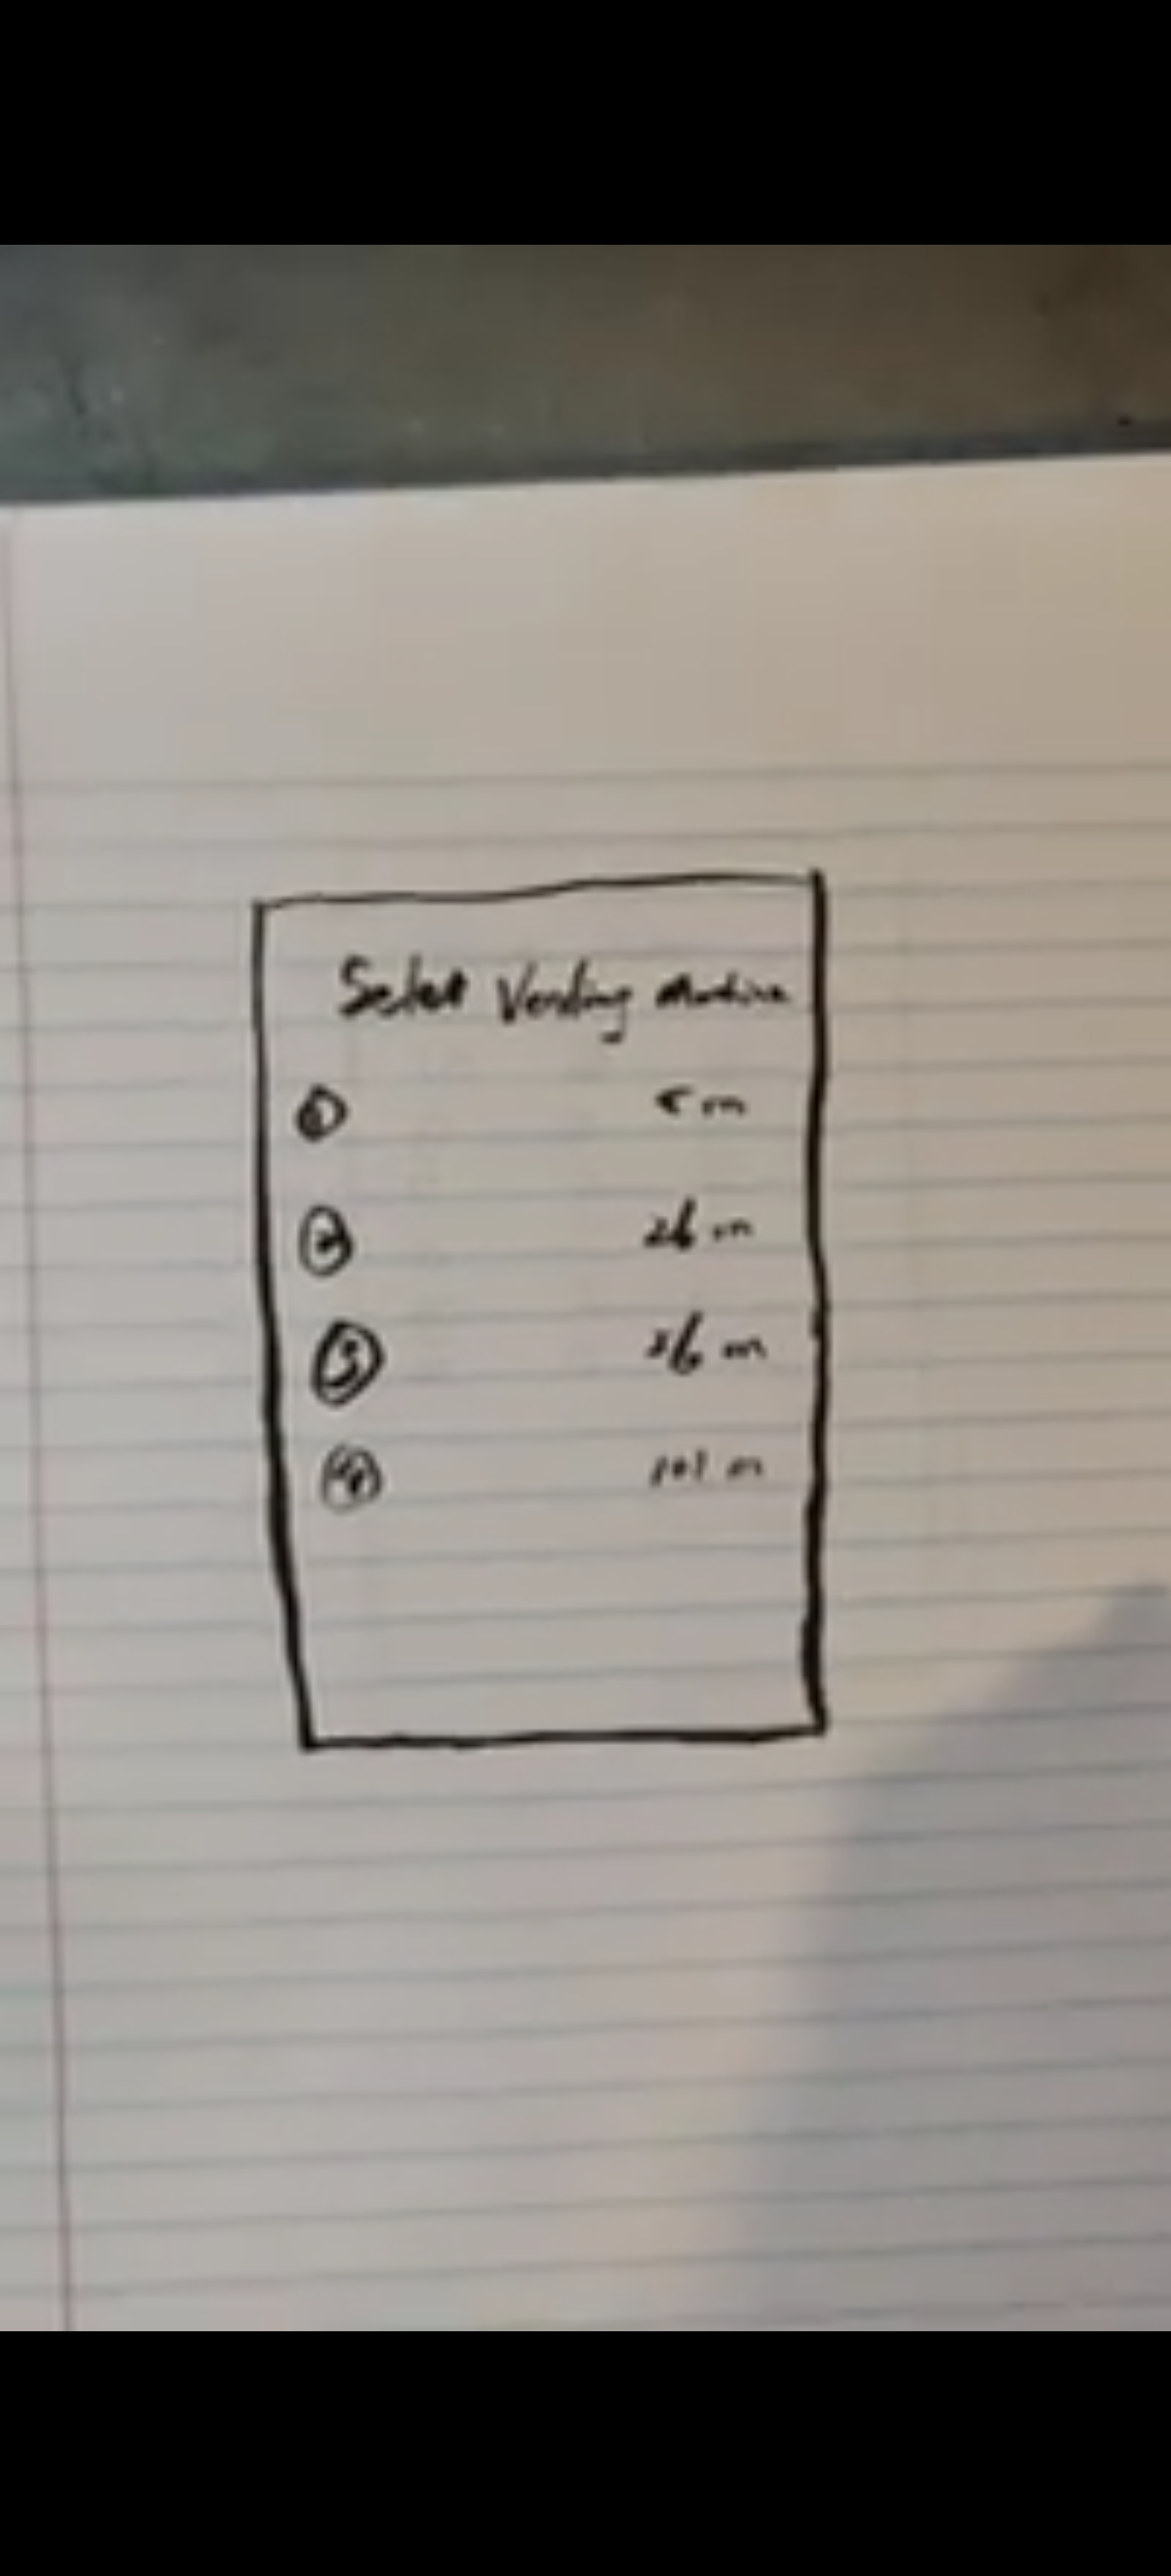 Select Vending Machine
① 5 m
② 26 m
③ 36 m
④ 101 m